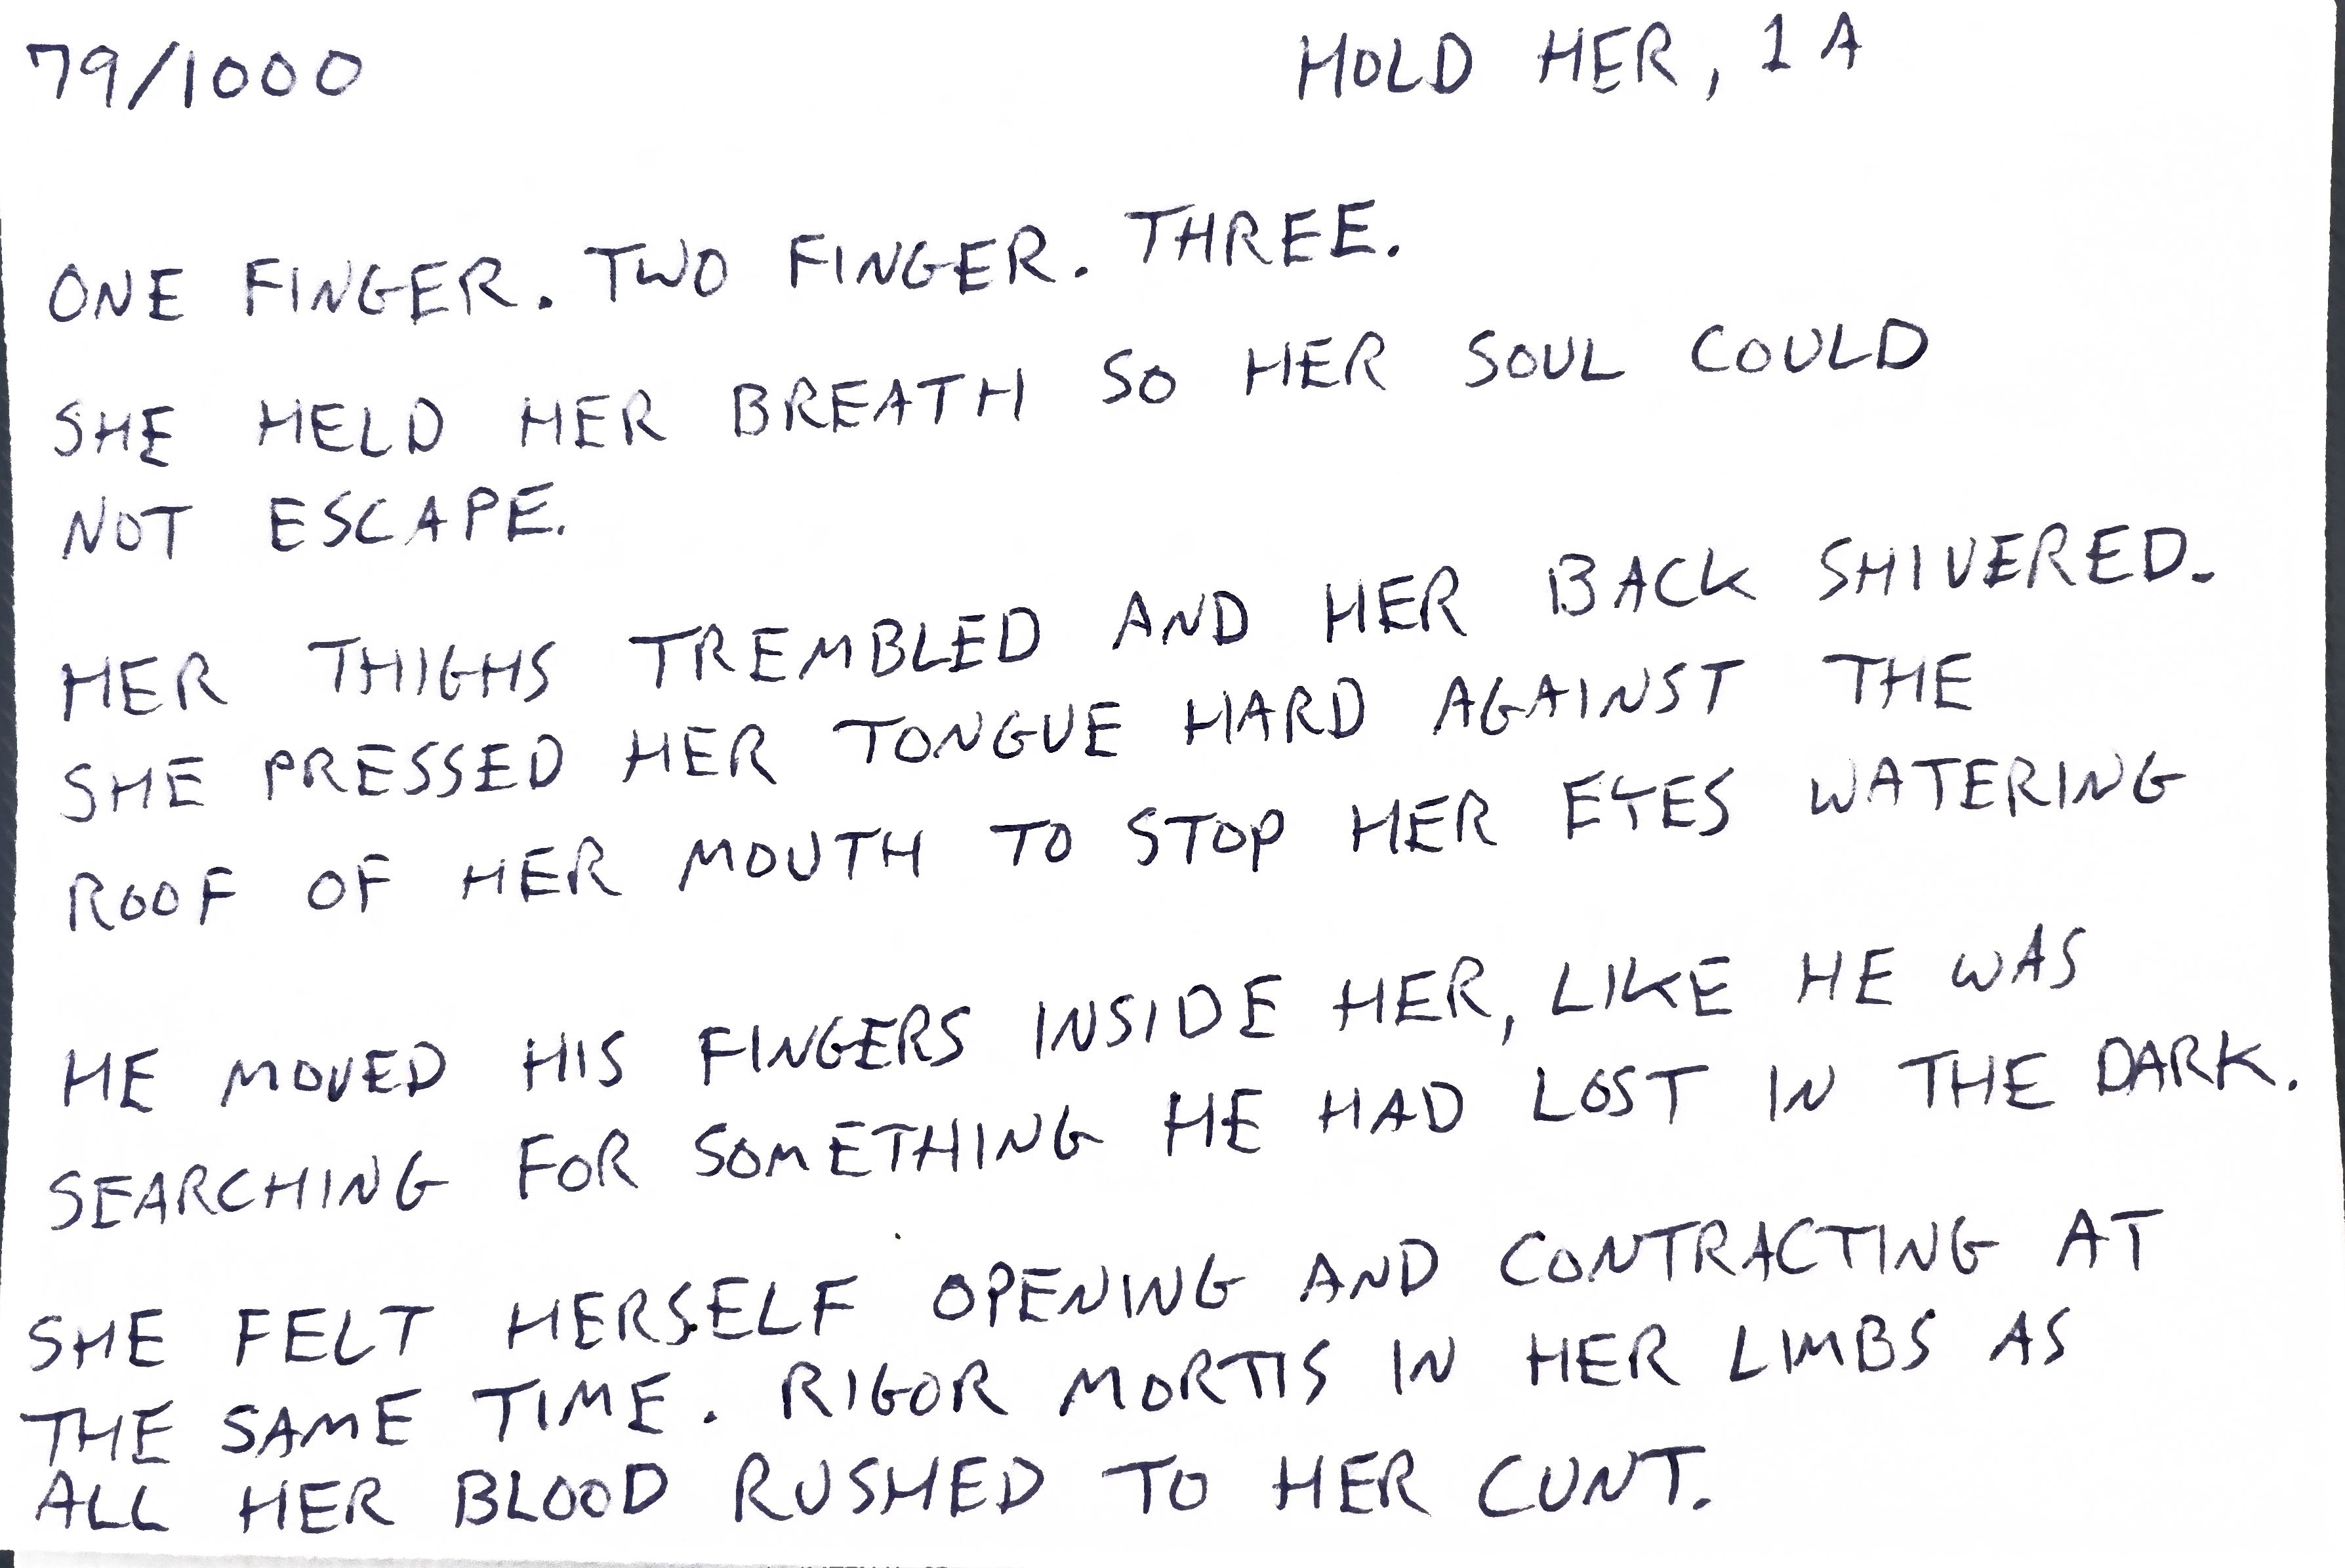 79/1000 HOLD HER, 1A
ONE FINGER. TWO FINGER. THREE.
SHE HELD HER BREATH SO HER SOUL COULD
NOT ESCAPE.
HER THIGHS TREMBLED AND HER BACK SHIVERED.
SHE PRESSED HER TONGUE HARD AGAINST THE
ROOF OF HER MOUTH TO STOP HER EYES WATERING
HE MOVED HIS FINGERS INSIDE HER, LIKE HE WAS
SEARCHING FOR SOMETHING HE HAD LOST IN THE DARK.
SHE FELT HERSELF OPENING AND CONTRACTING AT
THE SAME TIME. RIGOR MORTIS IN HER LIMBS AS
ALL HER BLOOD RUSHED TO HER CUNT.